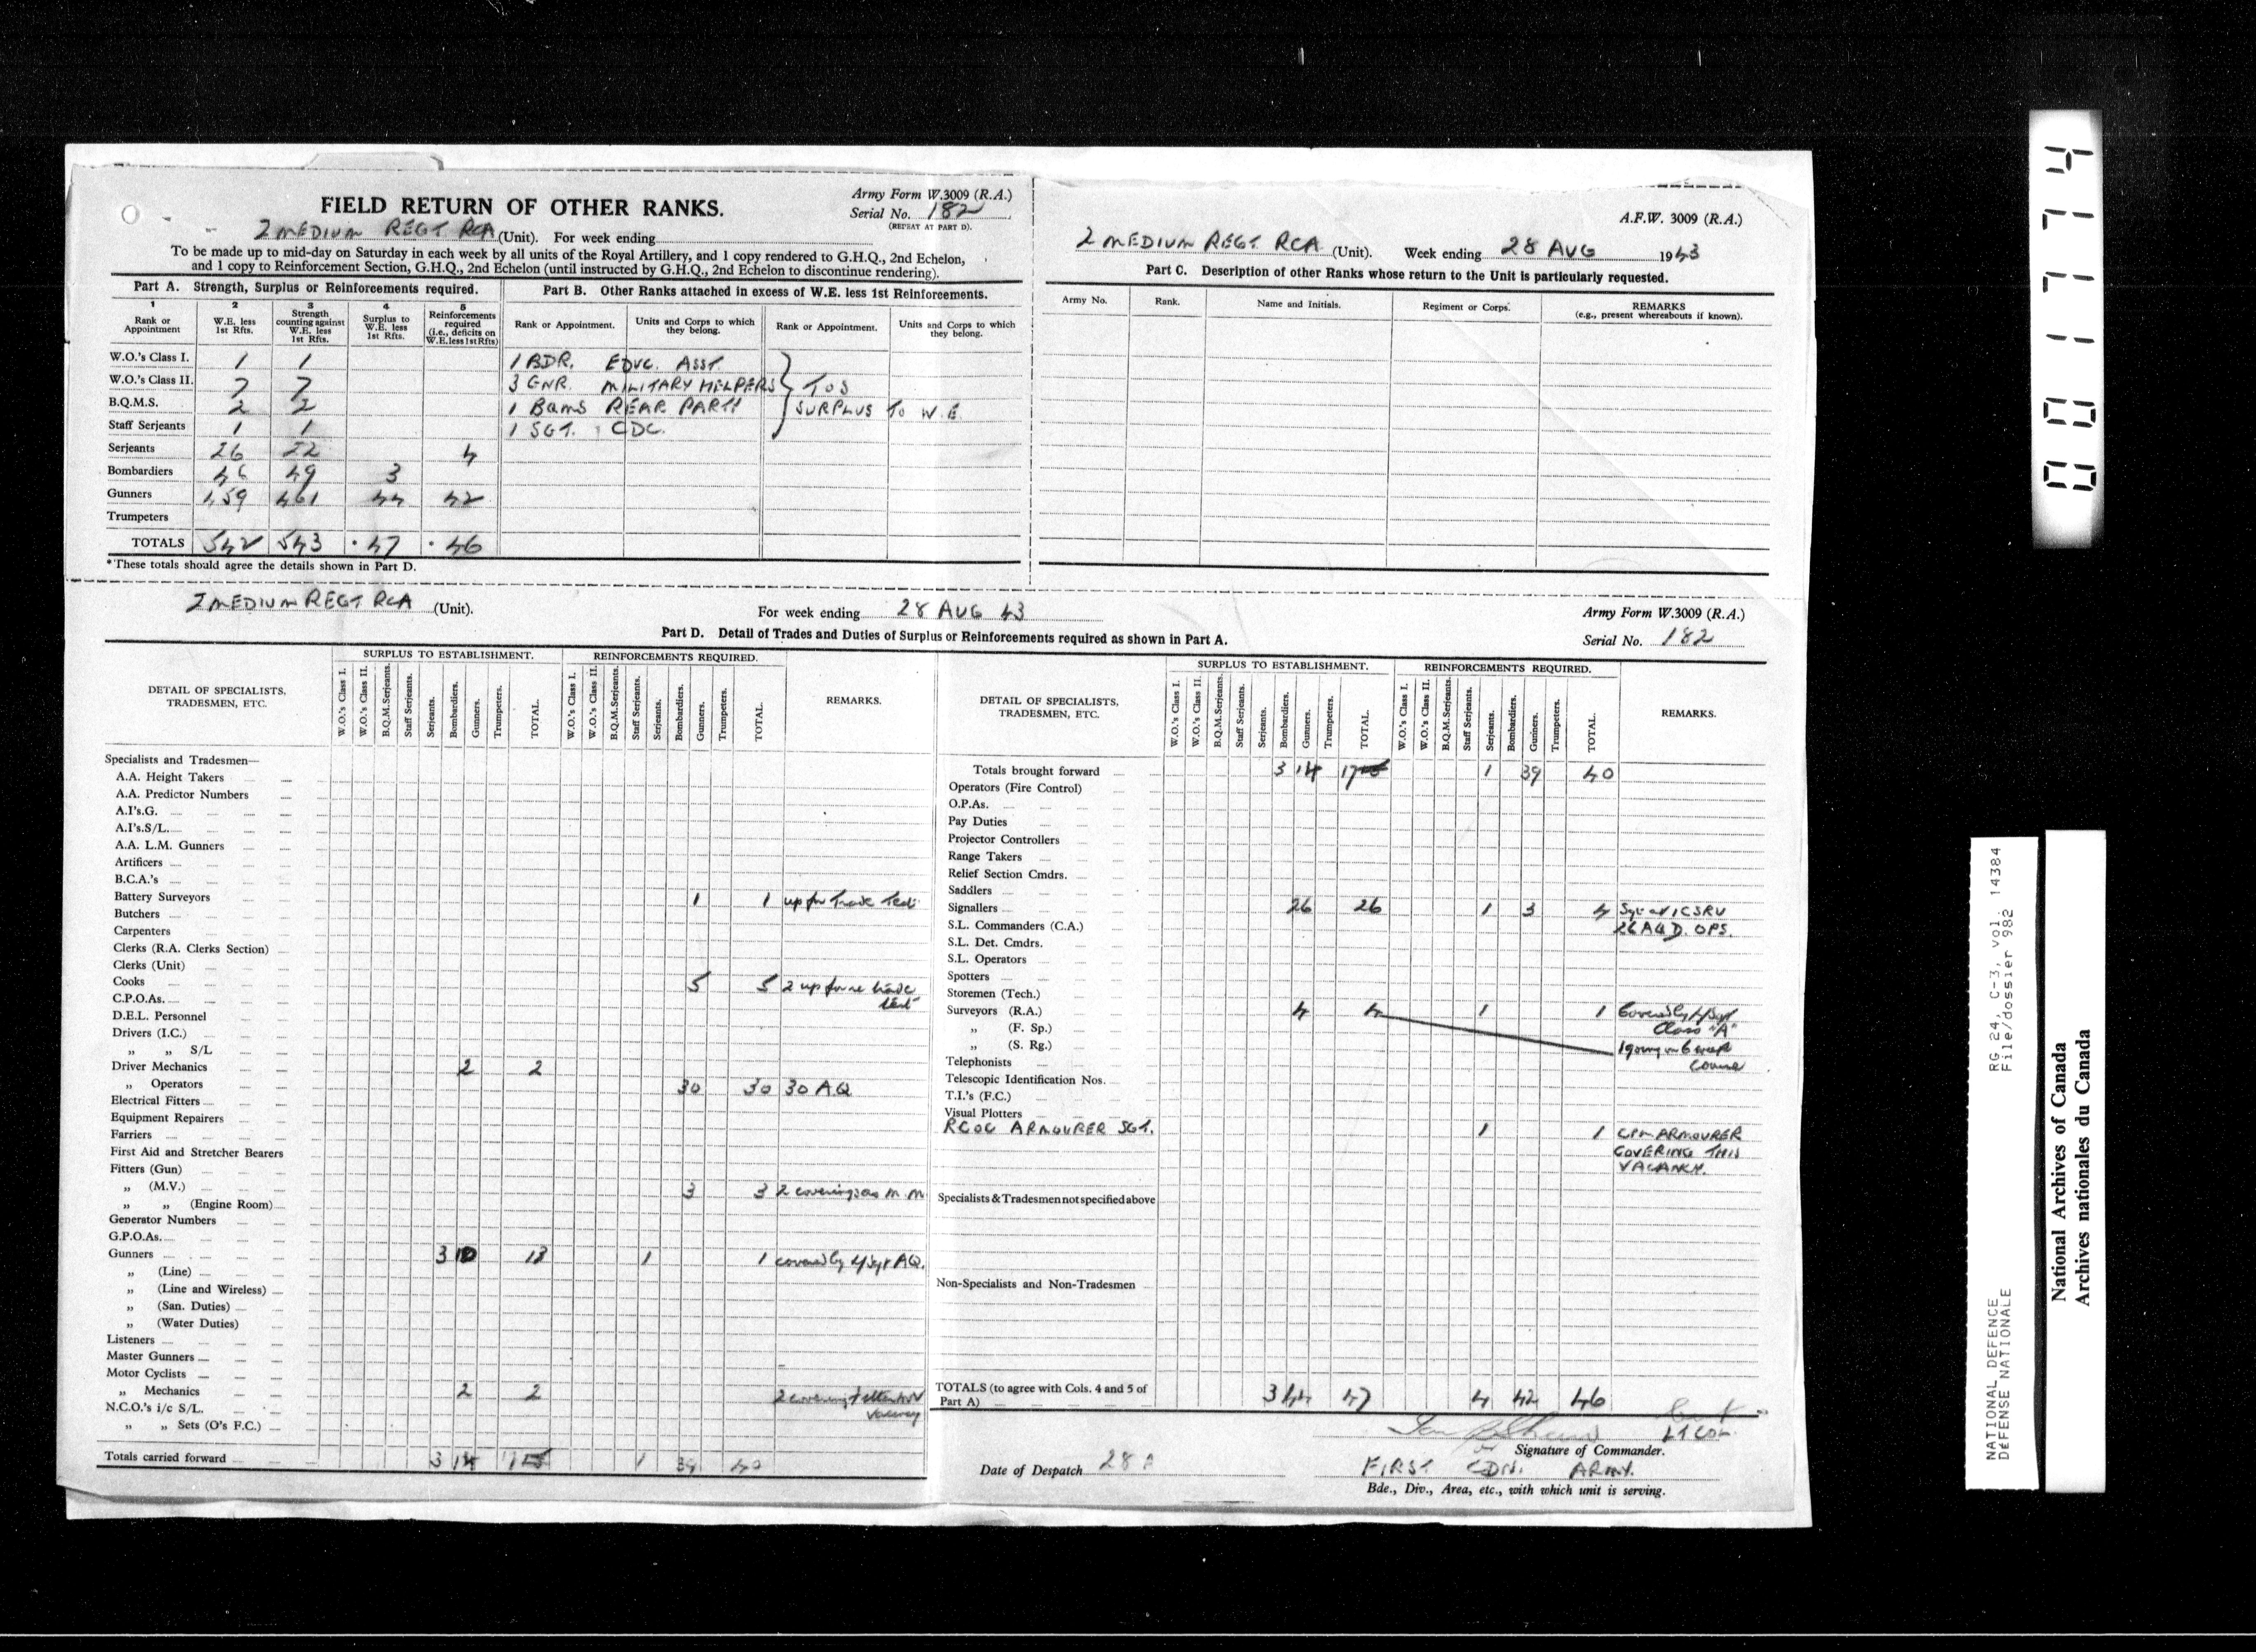 FIELD RETURN OF OTHER RANKS.
Army Form W.3009 (R.A.)
Serial No. 182
(REPEAT AT PART D).
2 MEDIUM REGT RCA (Unit). For week ending
To be made up to mid-day on Saturday in each week by all units of the Royal Artillery, and 1 copy rendered to G.H.Q., 2nd Echelon,
and 1 copy to Reinforcement Section, G.H.Q., 2nd Echelon (until instructed by G.H.Q., 2nd Echelon to discontinue rendering).
Part A. Strength, Surplus or Reinforcements required.
Part B. Other Ranks attached in excess of W.E. less 1st Reinforcements.
1 2 3 4 5
Rank or Appointment
W.E. less 1st Rfts.
Strength counting against W.E. less 1st Rfts.
Surplus to W.E. less 1st Rfts.
Reinforcements required (i.e., deficits on W.E. less 1st Rfts)
Rank or Appointment.
Units and Corps to which they belong.
Rank or Appointment.
Units and Corps to which they belong.
W.O.'s Class I. 1 1
1 BDR. EDUC. ASST.
W.O.'s Class II. 7 7
3 GNR. MILITARY HELPERS } TOS
B.Q.M.S. 2 2
1 BQMS REAR PARTY SURPLUS TO W.E.
Staff Serjeants 1 1
1 SGT. CDC.
Serjeants 26 22 4
Bombardiers 46 49 3
Gunners 459 461 44 42
Trumpeters
TOTALS 542 543 * 47 * 46
*These totals should agree the details shown in Part D.
A.F.W. 3009 (R.A.)
2 MEDIUM REGT. RCA (Unit). Week ending 28 AUG 1943
Part C. Description of other Ranks whose return to the Unit is particularly requested.
Army No.
Rank.
Name and Initials.
Regiment or Corps.
REMARKS
(e.g., present whereabouts if known).
2 MEDIUM REGT RCA (Unit).
For week ending 28 AUG 43
Army Form W.3009 (R.A.)
Part D. Detail of Trades and Duties of Surplus or Reinforcements required as shown in Part A.
Serial No. 182
DETAIL OF SPECIALISTS, TRADESMEN, ETC.
SURPLUS TO ESTABLISHMENT.
W.O.'s Class I. W.O.'s Class II. B.Q.M.Serjeants. Staff Serjeants. Serjeants. Bombardiers. Gunners. Trumpeters. TOTAL.
REINFORCEMENTS REQUIRED.
W.O.'s Class I. W.O.'s Class II. B.Q.M.Serjeants. Staff Serjeants. Serjeants. Bombardiers. Gunners. Trumpeters. TOTAL.
REMARKS.
Specialists and Tradesmen—
A.A. Height Takers
A.A. Predictor Numbers
A.I's.G.
A.I's.S/L.
A.A. L.M. Gunners
Artificers
B.C.A.'s
Battery Surveyors 1 1 up for Trade Test
Butchers
Carpenters
Clerks (R.A. Clerks Section)
Clerks (Unit)
Cooks 5 5 2 up for trade
test
C.P.O.As.
D.E.L. Personnel
Drivers (I.C.)
„ „ S/L
Driver Mechanics 2 2
„ Operators 30 30 30 AQ
Electrical Fitters
Equipment Repairers
Farriers
First Aid and Stretcher Bearers
Fitters (Gun)
„ (M.V.) 3 3 2 covering as M.M.
„ „ (Engine Room)
Generator Numbers
G.P.O.As.
Gunners 3 10 13 1 1 covered by L/Sgt AQ.
„ (Line)
„ (Line and Wireless)
„ (San. Duties)
„ (Water Duties)
Listeners
Master Gunners
Motor Cyclists
„ Mechanics 2 2 2 covering
N.C.O.'s i/c S/L.
„ „ Sets (O's F.C.)
Totals carried forward 3 14 17 1 39 40
DETAIL OF SPECIALISTS, TRADESMEN, ETC.
SURPLUS TO ESTABLISHMENT.
W.O.'s Class I. W.O.'s Class II. B.Q.M.Serjeants. Staff Serjeants. Serjeants. Bombardiers. Gunners. Trumpeters. TOTAL.
REINFORCEMENTS REQUIRED.
W.O.'s Class I. W.O.'s Class II. B.Q.M.Serjeants. Staff Serjeants. Serjeants. Bombardiers. Gunners. Trumpeters. TOTAL.
REMARKS.
Totals brought forward 3 14 17 1 39 40
Operators (Fire Control)
O.P.As.
Pay Duties
Projector Controllers
Range Takers
Relief Section Cmdrs.
Saddlers
Signallers 26 26 1 3 4 Sgt at 1 CSRU
S.L. Commanders (C.A.) 26 AQ D. OPS.
S.L. Det. Cmdrs.
S.L. Operators
Spotters
Storemen (Tech.)
Surveyors (R.A.) 4 4 1 1 Covered by L/Sgt
„ (F. Sp.) Class "A"
„ (S. Rg.) 1 going on 6 week
Telephonists course
Telescopic Identification Nos.
T.I.'s (F.C.)
Visual Plotters
RCOC ARMOURER SGT. 1 1 CPL ARMOURER
COVERING THIS
VACANCY.
Specialists & Tradesmen not specified above
Non-Specialists and Non-Tradesmen
TOTALS (to agree with Cols. 4 and 5 of Part A) 3 44 47 4 42 46
Lt Col.
Signature of Commander.
Date of Despatch 28 A
FIRST CDN. ARMY.
Bde., Div., Area, etc., with which unit is serving.
001774
RG 24, C-3, vol. 14384
File/dossier 982
NATIONAL DEFENCE
DÉFENSE NATIONALE
National Archives of Canada
Archives nationales du Canada